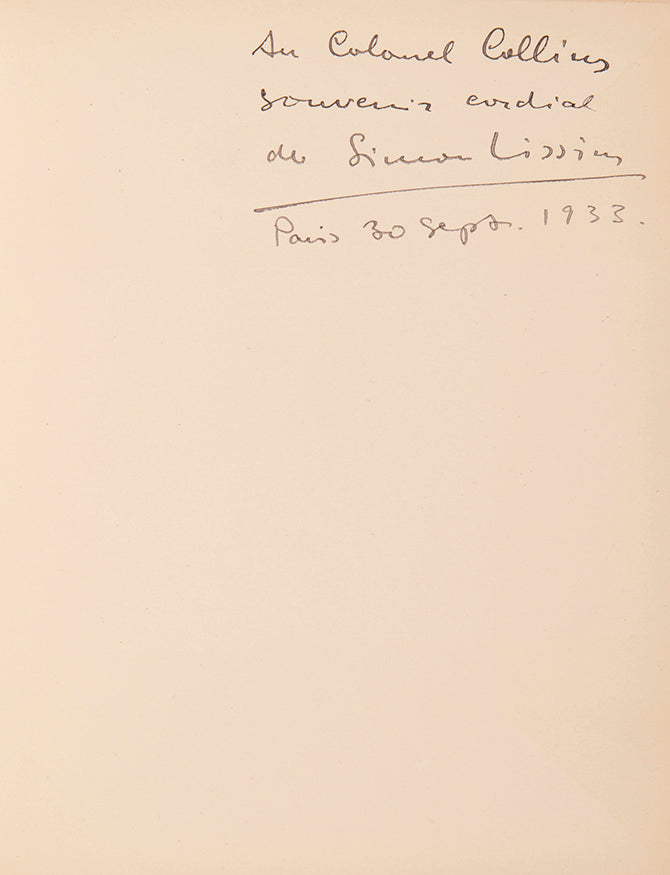 Au Colonel Collins
souvenir cordial
de Simon Lissim
Paris 30 Sept. 1933.